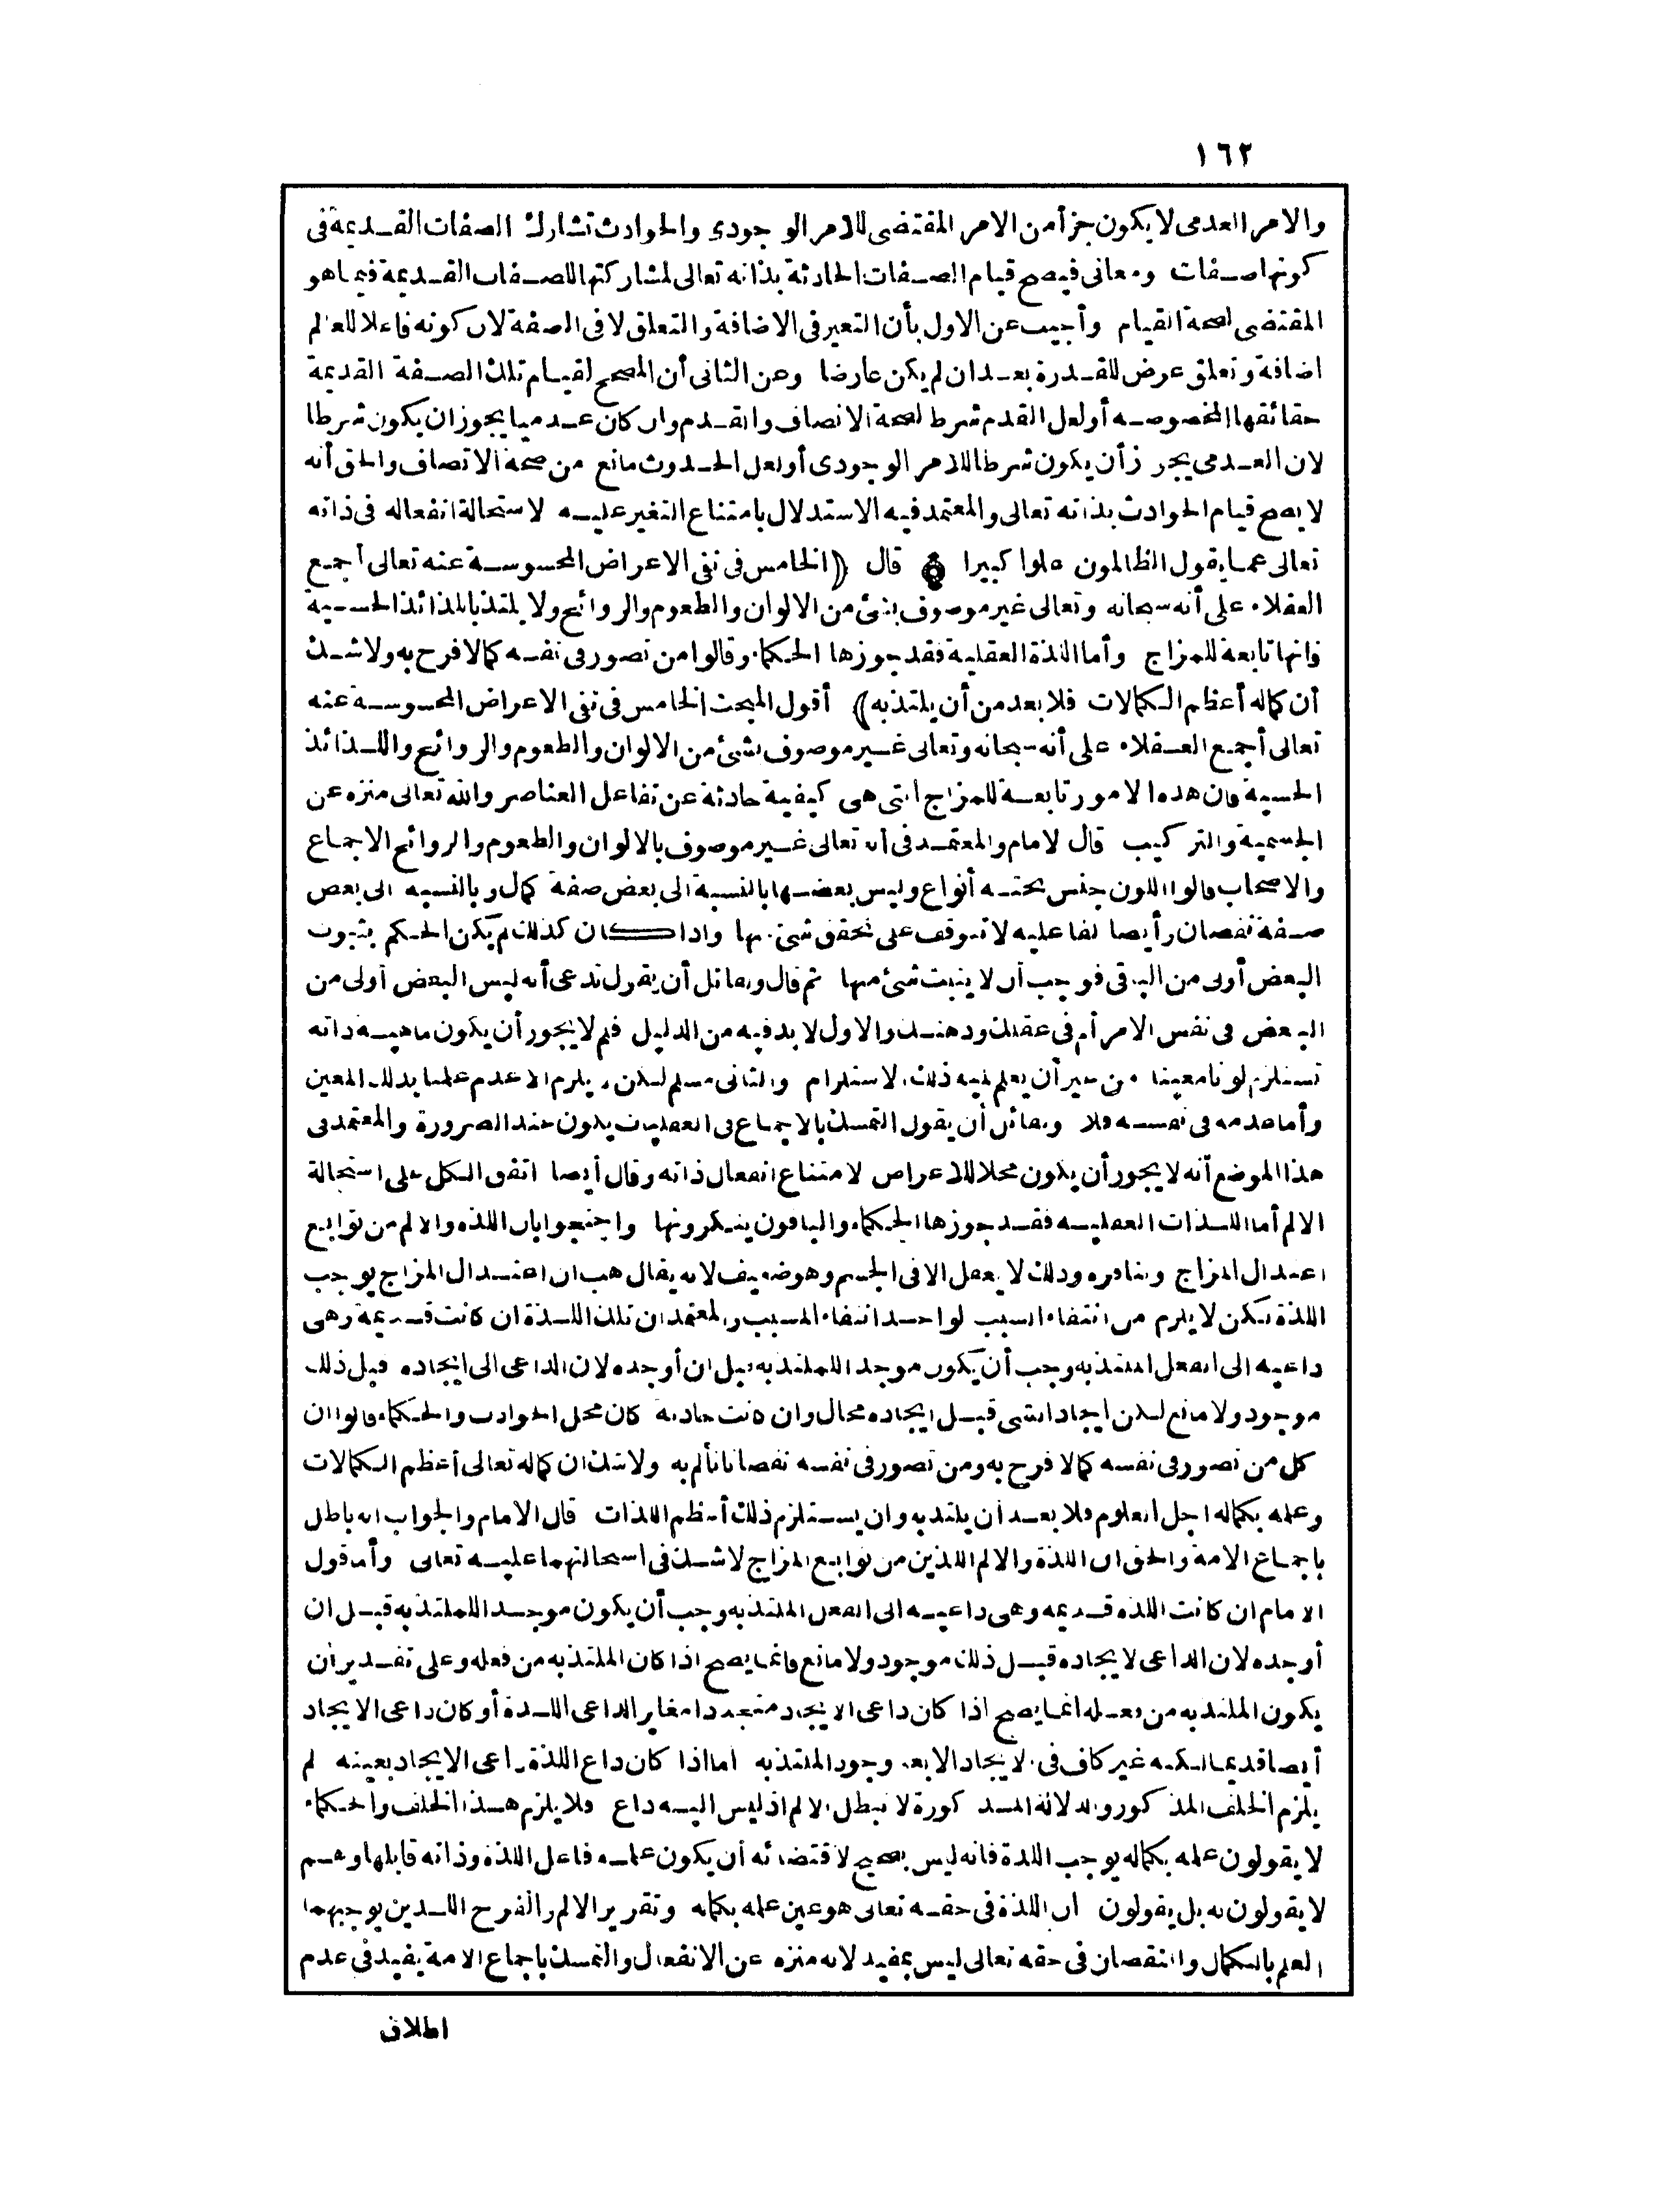 ١٦٢
والامر العدمى لا يكون جزأ من الامر المقتضى للامر الوجودى والحوادث تشارك الصفات القديمة فى
كونها صفات ومعانى فيصح قيام الصفات الحادثة بذاته تعالى لمشاركتها للصفات القديمة فيما هو
المقتضى لصحة القيام وأجيب عن الاول بأن التغير فى الاضافة والتعلق لا فى الصفة لان كونه فاعلا للعالم
اضافة وتعلق عرض للقدرة بعد ان لم يكن عارضا وعن الثانى أن المصحح لقيام تلك الصفة القديمة
حقائقها المخصوصة أو لعل القدم شرط لصحة الاتصاف والقدم وان كان عدميا يجوز ان يكون شرطا
لان العدمى يجوز أن يكون شرطا للامر الوجودى أو لعل الحدوث مانع من صحة الاتصاف والحق أنه
لا يصح قيام الحوادث بذاته تعالى والمعتمد فيه الاستدلال بامتناع التغير عليه لاستحالة انفعاله فى ذاته
تعالى عما يقول الظالمون علوا كبيرا ۞ قال (الخامس فى نفى الاعراض المحسوسة عنه تعالى أجمع
العقلاء على أنه سبحانه وتعالى غير موصوف بشئ من الالوان والطعوم والروائح ولا يلتذ باللذائذ الحسية
فانها تابعة للمزاج وأما اللذة العقلية فقد جوزها الحكماء وقالوا من تصور فى نفسه كمالا فرح به ولا شك
أن كماله أعظم الكمالات فلا بعد من أن يلتذ به) أقول المبحث الخامس فى نفى الاعراض المحسوسة عنه
تعالى أجمع العقلاء على أنه سبحانه وتعالى غير موصوف بشئ من الالوان والطعوم والروائح واللذائذ
الحسية فان هذه الامور تابعة للمزاج التى هى كيفية حادثة عن تفاعل العناصر والله تعالى منزه عن
الجسمية والتركيب قال الامام والمعتمد فى أنه تعالى غير موصوف بالالوان والطعوم والروائح الاجماع
والاصحاب قالوا اللون جنس تحته أنواع وليس بعضها بالنسبة الى بعض صفة كمال وبالنسبة الى بعض
صفة نقصان وأيضا الفاعلية لا تتوقف على تحقق شئ منها واذا كان كذلك لم يكن الحكم بثبوت
البعض أولى من الباقى فوجب أن لا يثبت شئ منها ثم قال ولقائل أن يقول تدعى أنه ليس البعض أولى من
البعض فى نفس الامر أم فى عقلك وذهنك والاول لا بد فيه من الدليل فلم لا يجوز أن يكون ماهية ذاته
تستلزم لونا معينا من غير أن يعلم لمية ذلك الاستلزام والثانى مسلم لكن يلزم الا عدم علمنا بذلك المعين
وأما عدمه فى نفسه فلا ولقائل أن يقول التمسك بالاجماع فى العقليات يكون عند الضرورة والمعتمد فى
هذا الموضع أنه لا يجوز أن يكون محلا للاعراض لامتناع انفعال ذاته وقال أيضا اتفق الكل على استحالة
الالم أما اللذات العقلية فقد جوزها الحكماء والباقون ينكرونها واحتجوا بان اللذة والالم من توابع
اعتدال المزاج وتنافره وذلك لا يعقل الا فى الجسم وهو ضعيف لانه يقال هب ان اعتدال المزاج يوجب
اللذة لكن لا يلزم من انتفاء السبب الواحد انتفاء المسبب والمعتمد ان تلك اللذة ان كانت قديمة وهى
داعية الى الفعل الملتذ به وجب أن يكون موجد الملتذ به قبل ان أوجده لان الداعى الى ايجاده قبل ذلك
موجود ولا مانع لكن ايجاد الشئ قبل ايجاده محال وان كانت حادثة كان محل الحوادث والحكماء قالوا ان
كل من تصور فى نفسه كمالا فرح به ومن تصور فى نفسه نقصانا تألم به ولا شك ان كماله تعالى أعظم الكمالات
وعلمه بكماله اجل العلوم فلا بعد أن يلتذ به وان يستلزم ذلك أعظم اللذات قال الامام والجواب انه باطل
باجماع الامة والحق ان اللذة والالم اللذين من توابع المزاج لا شك فى استحالتهما عليه تعالى وأما قول
الامام ان كانت اللذة قديمة وهى داعية الى الفعل الملتذ به وجب أن يكون موجد الملتذ به قبل ان
أوجده لان الداعى لايجاده قبل ذلك موجود ولا مانع فانما يصح اذا كان الملتذ به من فعله وعلى تقدير أن
يكون الملتذ به من فعله انما يصح اذا كان داعى الايجاد متجددا مغاير الداعى اللذة أو كان داعى الايجاد
أيضا قديما لكنه غير كاف فى الايجاد الا بعد وجود الملتذ به اما اذا كان داع اللذة داعى الايجاد بعينه لم
يلزم الخلف المذكور والدلالة المذكورة لا تبطل الالم اذ ليس اليه داع فلا يلزم هذا الخلف والحكماء
لا يقولون علمه بكماله يوجب اللذة فانه ليس بصحيح لاقتضائه أن يكون علمه فاعل اللذة وذاته قابلها وهم
لا يقولون به بل يقولون ان اللذة فى حقه تعالى هو عين علمه بكماله وتقرير الالم والفرح اللذين يوجبهما
العلم بالكمال والنقصان فى حقه تعالى ليس بمفيد لانه منزه عن الانفعال والتمسك باجماع الامة يفيد فى عدم
اطلاق